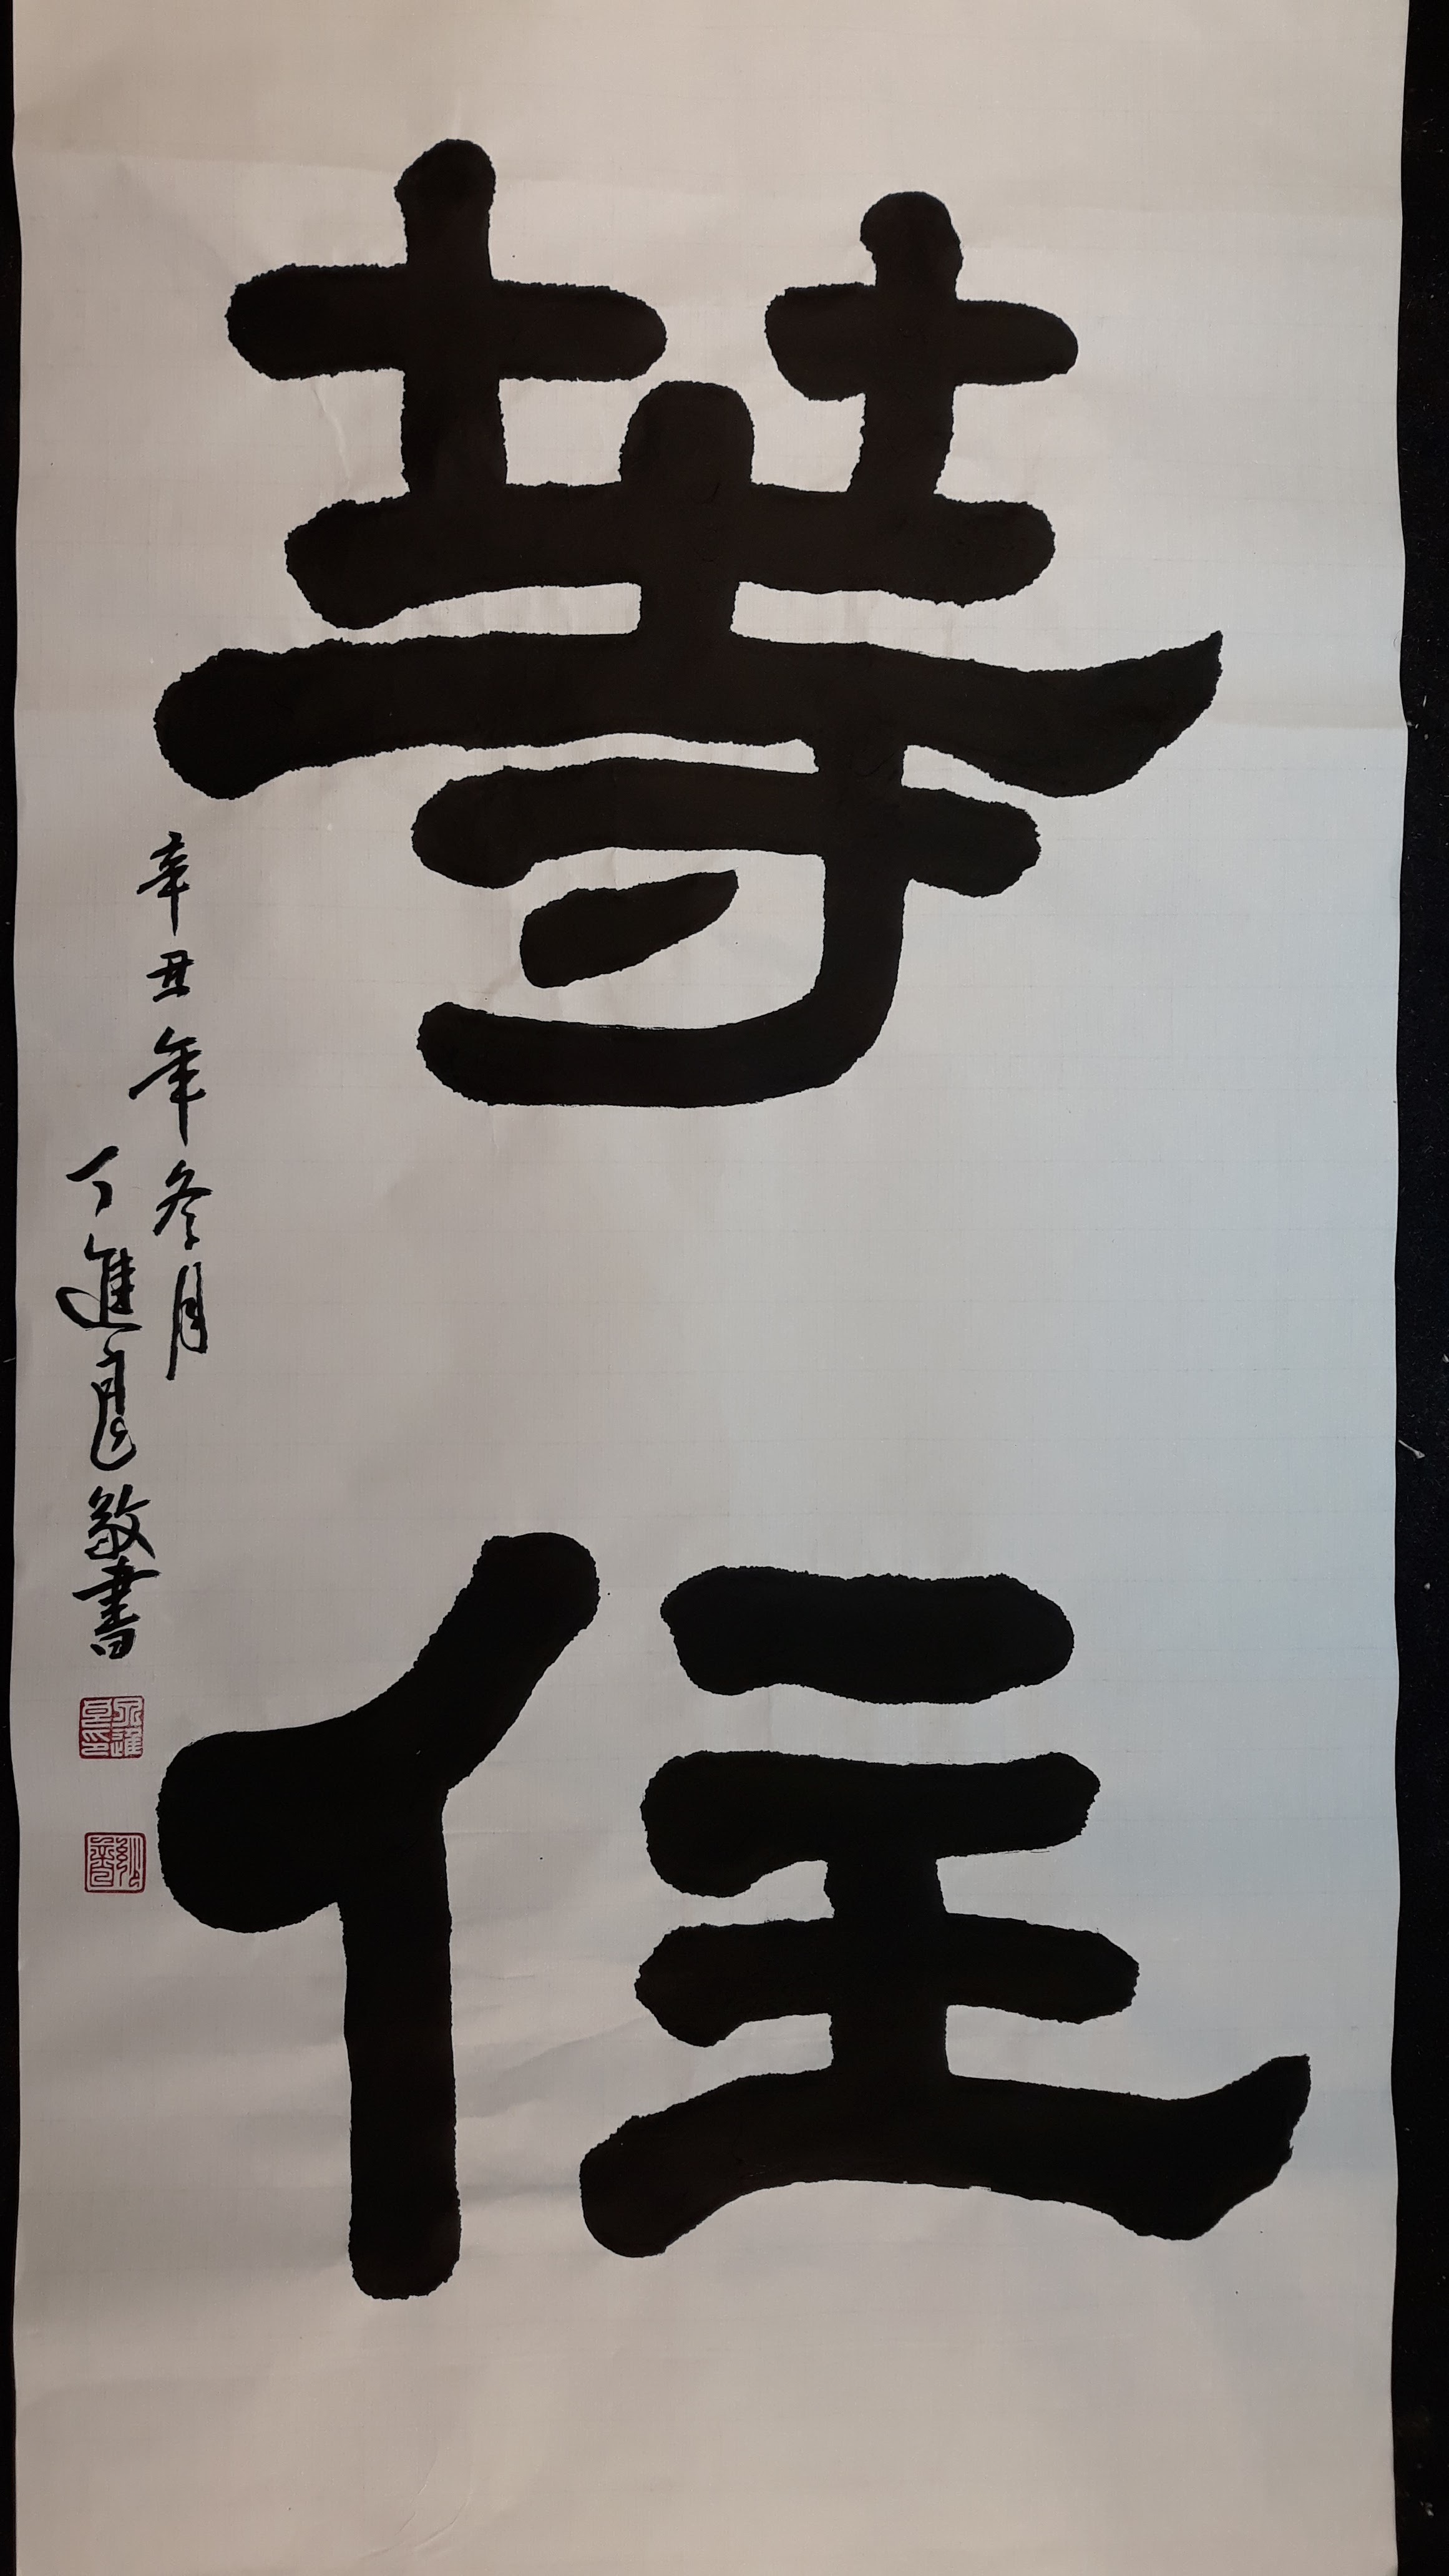 等住
辛丑年冬月
丁進良敬書